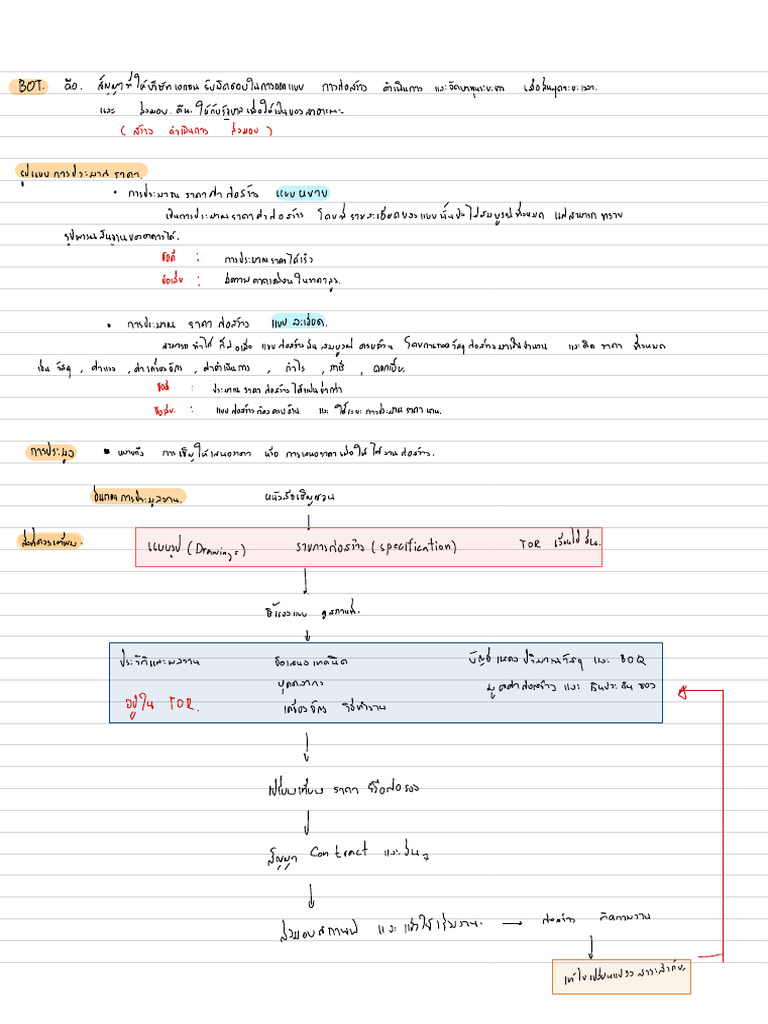 BOT. คือ. สัญญาที่ให้บริษัทเอกชน รับผิดชอบในการออกแบบ การก่อสร้าง ดำเนินการ และจัดหาทุนระยะยาว เมื่อสิ้นสุดระยะเวลา.
และ ส่งมอบ คืน ให้กับรัฐบาลเพื่อให้เป็นของสาธารณะ
( สร้าง ดำเนินการ ส่งมอบ )
รูปแบบการประมาณ ราคา.
• การประมาณ ราคาค่าก่อสร้าง แบบหยาบ
เป็นการประมาณราคาค่าก่อสร้าง โดยที่รายละเอียดของแบบนั้นยังไม่สมบูรณ์ทั้งหมด แต่สามารถทราบ
รูปพรรณสัณฐานของอาคารได้.
ข้อดี : การประมาณราคาได้เร็ว
ข้อเสีย : มีความคาดเคลื่อนในราคาสูง.
• การประมาณ ราคา ก่อสร้าง แบบละเอียด.
สามารถทำได้ ก็ต่อเมื่อ แบบก่อสร้างนั้น สมบูรณ์ ครบถ้วน โดยการถอดวัสดุก่อสร้างมาเป็นจำนวน และคิด ราคา ทั้งหมด
เช่น วัสดุ , ค่าแรง , ค่าเครื่องจักร , ค่าดำเนินการ , กำไร , ภาษี , ดอกเบี้ย.
ข้อดี : ประมาณราคาก่อสร้างได้แม่นยำกว่า
ข้อเสีย : แบบก่อสร้างต้องครบถ้วน และ ใช้ระยะการประมาณราคา นาน.
การประมูล • หมายถึง การเชิญให้เสนอราคา หรือ การเสนอราคาเพื่อให้ได้งานก่อสร้าง.
ขั้นตอนการประมูลงาน. หนังสือเชิญชวน
สิ่งที่ควรเตรียม. แบบรูป (Drawings) รายการก่อสร้าง (specification) TOR เงื่อนไขอื่น.
ชี้แจงแบบ ดูสถานที่.
ประวัติและผลงาน ข้อเสนอเทคนิค บัญชีแสดงปริมาณวัสดุ และ BOQ
บุคลากร มูลค่าก่อสร้าง และ เงินประกันซอง
อยู่ใน TOR. เครื่องจักร วิธีทำงาน
เปรียบเทียบ ราคา หรือต่อรอง
สัญญา Contract และอื่นๆ
ส่งมอบสถานที่ และแจ้งให้เริ่มงาน → ก่อสร้าง ติดตามงาน
แก้ไขเปลี่ยนแปลง สาระสำคัญ